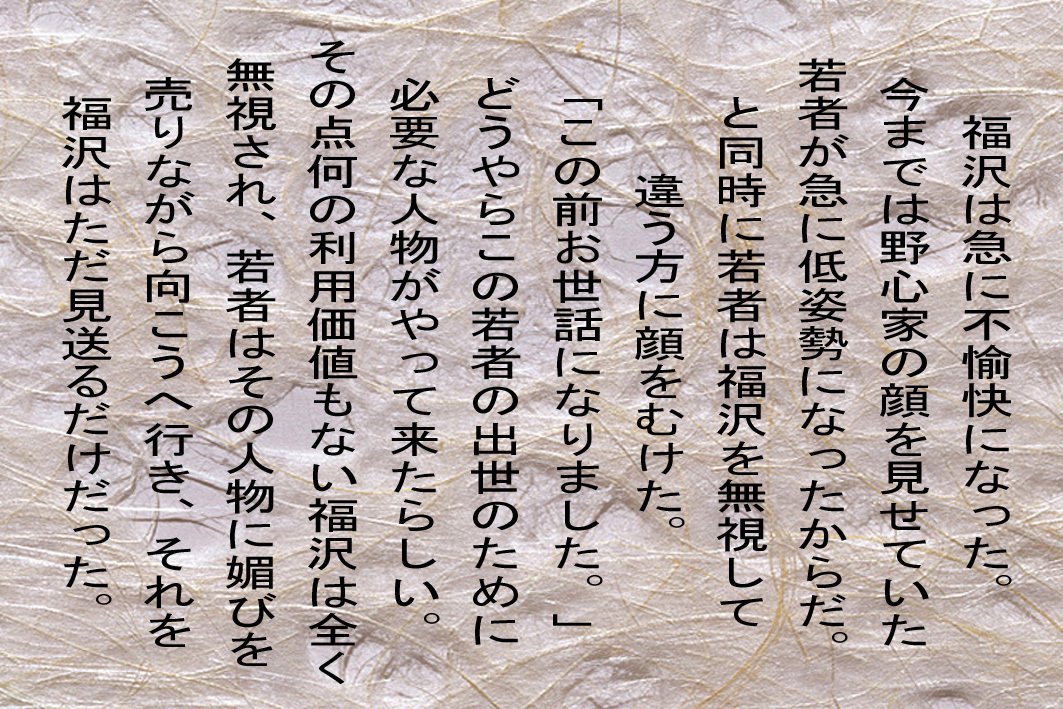 福沢は急に不愉快になった。
今までは野心家の顔を見せていた
若者が急に低姿勢になったからだ。
と同時に若者は福沢を無視して
違う方に顔をむけた。
「この前お世話になりました。」
どうやらこの若者の出世のために
必要な人物がやって来たらしい。
その点何の利用価値もない福沢は全く
無視され、若者はその人物に媚びを
売りながら向こうへ行き、それを
福沢はただ見送るだけだった。